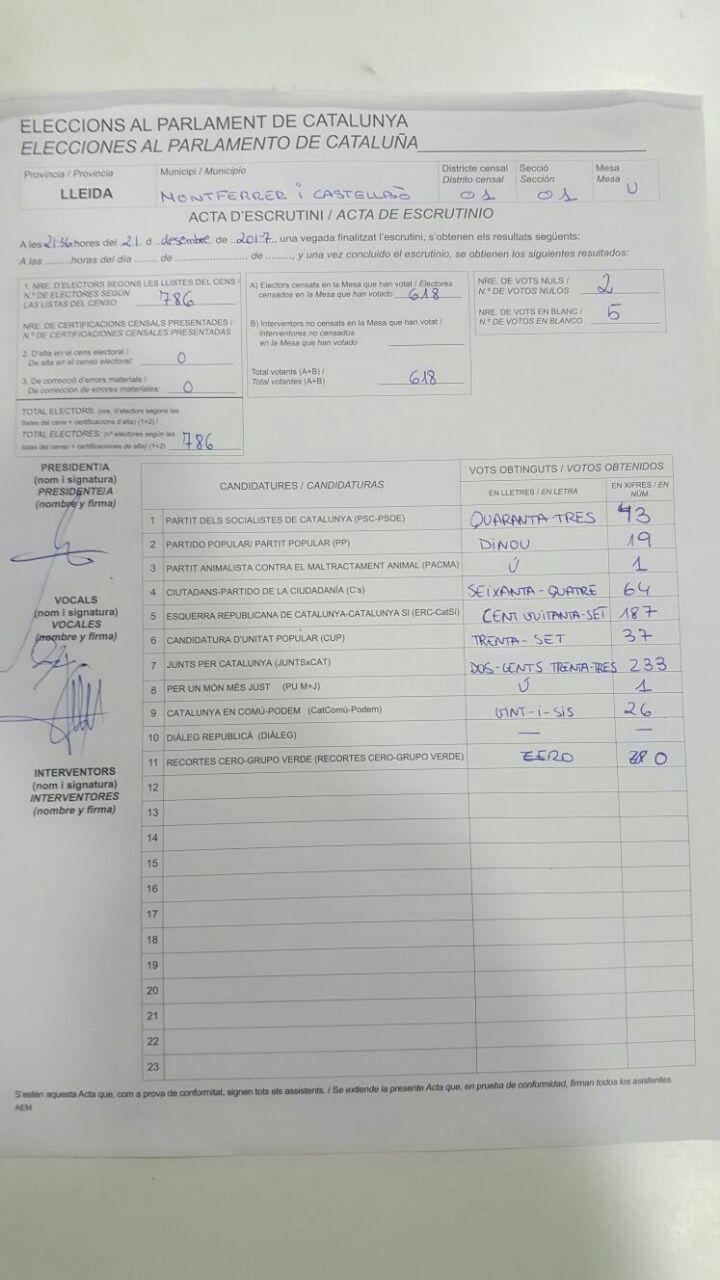 ELECCIONS AL PARLAMENT DE CATALUNYA
ELECCIONES AL PARLAMENTO DE CATALUÑA
Província / Provincia
LLEIDA
Municipi / Municipio
MONTFERRER i CASTELLBÒ
Districte censal
Distrito censal
01
Secció
Sección
01
Mesa
Mesa
U
ACTA D'ESCRUTINI / ACTA DE ESCRUTINIO
A les 21:36 hores del 21 d. desembre de 2017, una vegada finalitzat l'escrutini, s'obtenen els resultats següents:
A las ......... horas del día ........ de .................... de ........., y una vez concluido el escrutinio, se obtienen los siguientes resultados:
1. NRE. D'ELECTORS SEGONS LES LLISTES DEL CENS /
N.º DE ELECTORES SEGÚN
LAS LISTAS DEL CENSO 786
NRE. DE CERTIFICACIONS CENSALS PRESENTADES /
N.º DE CERTIFICACIONES CENSALES PRESENTADAS
2. D'alta en el cens electoral /
De alta en el censo electoral: 0
3. De correcció d'errors materials /
De corrección de errores materiales: 0
TOTAL ELECTORS: (nre. d'electors segons les
llistes del cens + certificacions d'alta) (1+2) /
TOTAL ELECTORES: (nº electores según las
listas del censo + certificaciones de alta) (1+2) 786
A) Electors censats en la Mesa que han votat / Electores
censados en la Mesa que han votado 618
B) Interventors no censats en la Mesa que han votat /
Interventores no censados
en la Mesa que han votado
Total votants (A+B) /
Total votantes (A+B) 618
NRE. DE VOTS NULS /
N.º DE VOTOS NULOS 2
NRE. DE VOTS EN BLANC /
N.º DE VOTOS EN BLANCO 5
PRESIDENT/A
(nom i signatura)
PRESIDENTE/A
(nombre y firma)
VOCALS
(nom i signatura)
VOCALES
(nombre y firma)
INTERVENTORS
(nom i signatura)
INTERVENTORES
(nombre y firma)
CANDIDATURES / CANDIDATURAS
VOTS OBTINGUTS / VOTOS OBTENIDOS
EN LLETRES / EN LETRA
EN XIFRES / EN NÚM.
1 PARTIT DELS SOCIALISTES DE CATALUNYA (PSC-PSOE) QUARANTA-TRES 43
2 PARTIDO POPULAR/ PARTIT POPULAR (PP) DINOU 19
3 PARTIT ANIMALISTA CONTRA EL MALTRACTAMENT ANIMAL (PACMA) Ú 1
4 CIUTADANS-PARTIDO DE LA CIUDADANÍA (C's) SEIXANTA-QUATRE 64
5 ESQUERRA REPUBLICANA DE CATALUNYA-CATALUNYA SI (ERC-CatSí) CENT VUITANTA-SET 187
6 CANDIDATURA D'UNITAT POPULAR (CUP) TRENTA-SET 37
7 JUNTS PER CATALUNYA (JUNTSxCAT) DOS-CENTS TRENTA-TRES 233
8 PER UN MÓN MÉS JUST (PU M+J) Ú 1
9 CATALUNYA EN COMÚ-PODEM (CatComú-Podem) VINT-i-SIS 26
10 DIÀLEG REPUBLICÀ (DIÀLEG) — —
11 RECORTES CERO-GRUPO VERDE (RECORTES CERO-GRUPO VERDE) ZERO 0
12
13
14
15
16
17
18
19
20
21
22
23
S'estén aquesta Acta que, com a prova de conformitat, signen tots els assistents. / Se extiende la presente Acta que, en prueba de conformidad, firman todos los asistentes.
AEM